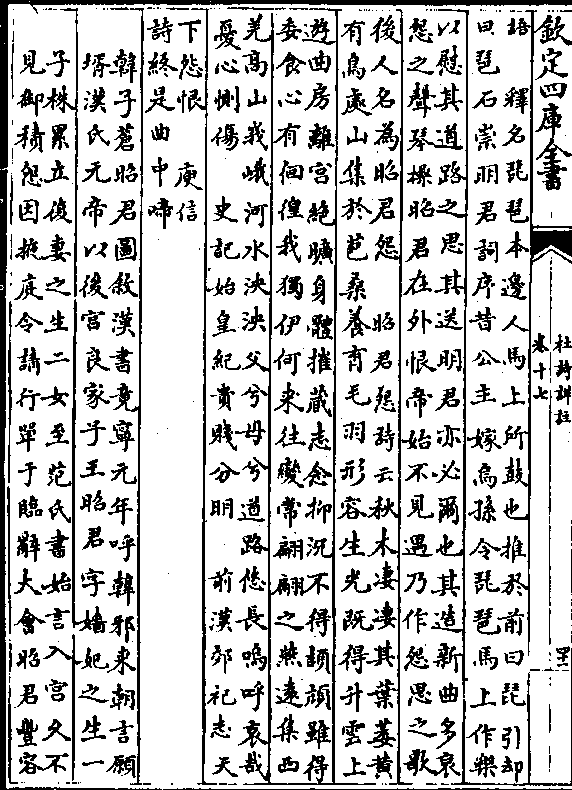 欽定四庫全書
杜詩詳註
卷十七
語　釋名琵琶本邊人馬上所鼓也推於前曰琵引却
曰琶石崇明君詞序昔公主嫁烏孫令琵琶馬上作樂
以慰其道路之思其送明君亦必爾也其造新曲多哀
怨之聲琴操昭君在外恨帝始不見遇乃作怨思之歌
後人名為昭君怨　昭君怨詩云秋木凄凄其葉萎黄
有鳥處山集於苞桑養育毛羽形容生光既得升雲上
遊曲房離宮絶曠身體摧藏志念抑況不得頡頏雖得
委食心有徊徨我獨伊何來往變常翩翩之燕遠集西
羌高山我峨河水泱泱父兮母兮道路悠長嗚呼哀哉
憂心惻傷　史記始皇紀貴賤分明　前漢郊祀志天
下怨恨　庾信
詩終是曲中啼
韓子蒼昭君圖敘漢書竟寧元年呼韓邪來朝言願
壻漢氏元帝以後宮良家子王昭君字嬙妃之生一
子株累立復妻之生二女至范氏書始言入宮久不
見御積怨因掖庭令請行單于臨辭大會昭君豐容